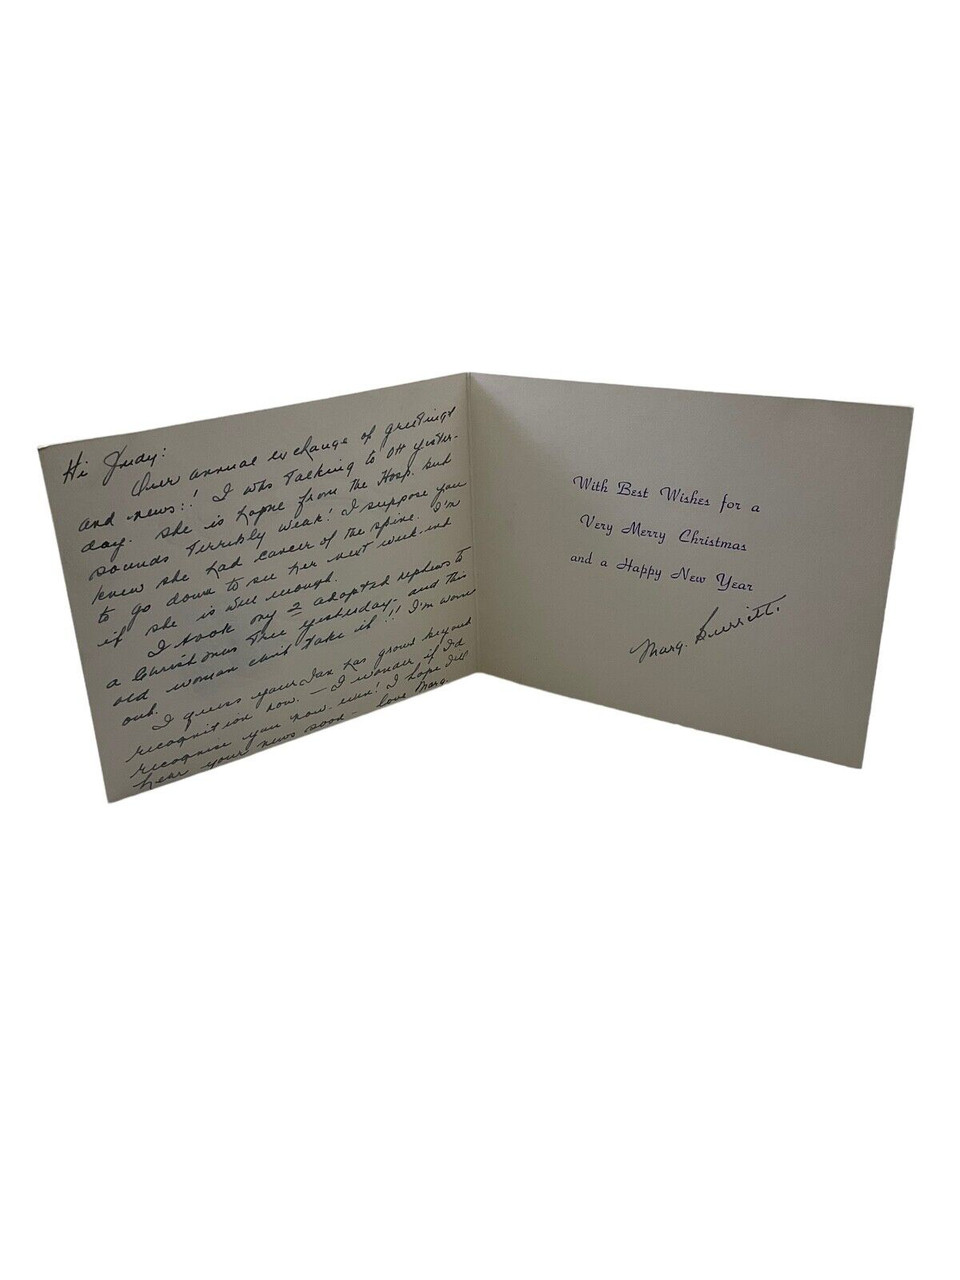 Hi Judy:
Our annual exchange of greetings
and news:! I was talking to Ott yester-
day. She is home from the Hosp. but
sounds terribly weak! I suppose you
knew she had cancer of the spine. I'm
to go down to see her next week-end
if she is well enough.
I took my 2 adopted nephews to
a Christmas Tree yesterday - and this
old woman can't take it!! I'm worn
out.
I guess your Ian has grown beyond
recognition now. - I wonder if I'd
recognise you now even! I hope I'll
hear your news soon - love Marg.
With Best Wishes for a
Very Merry Christmas
and a Happy New Year
Marg.